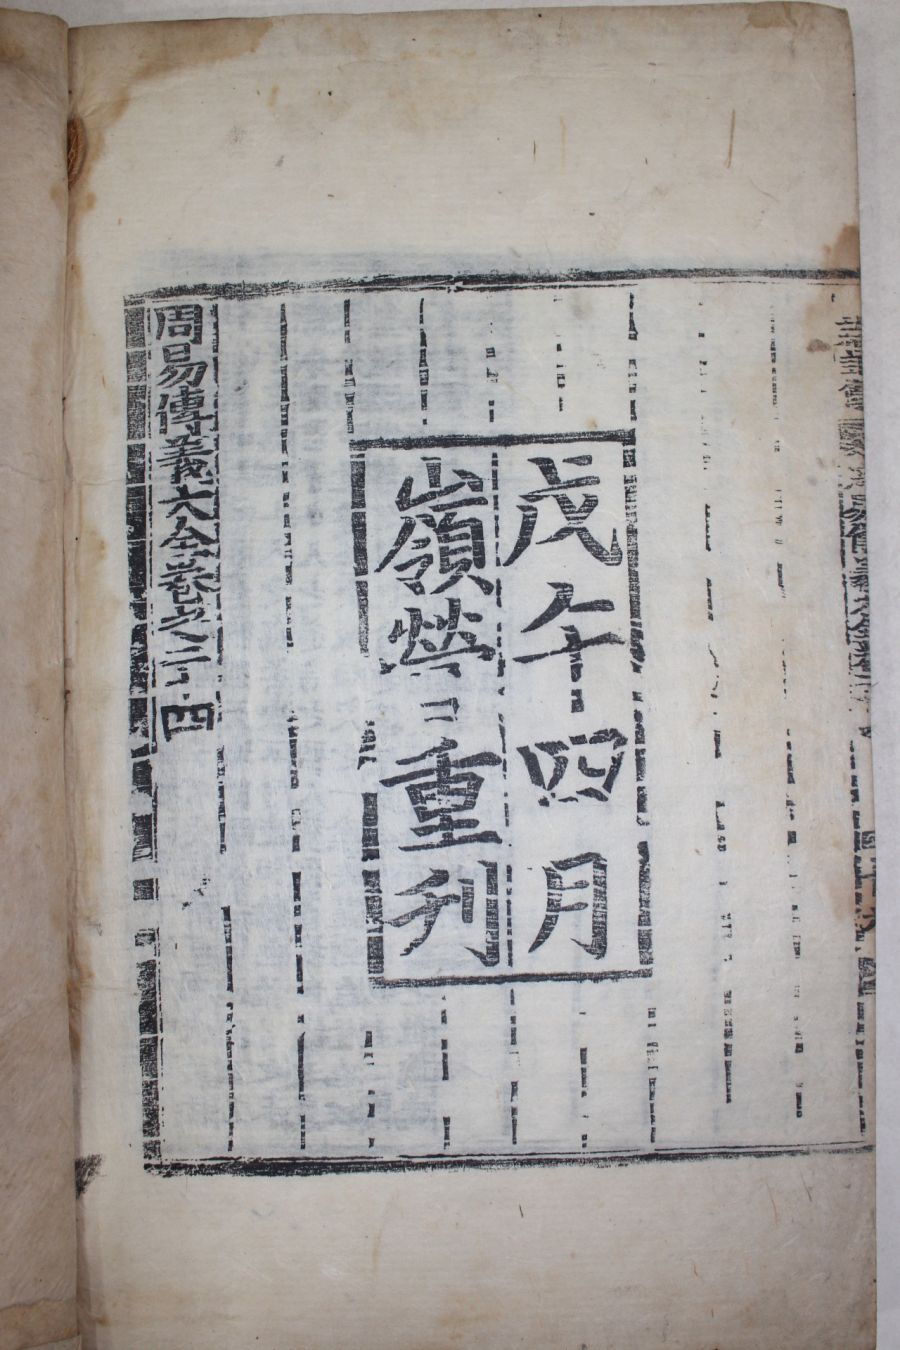 戊午四月
嶺營重刊
周易傳義大全卷之三四